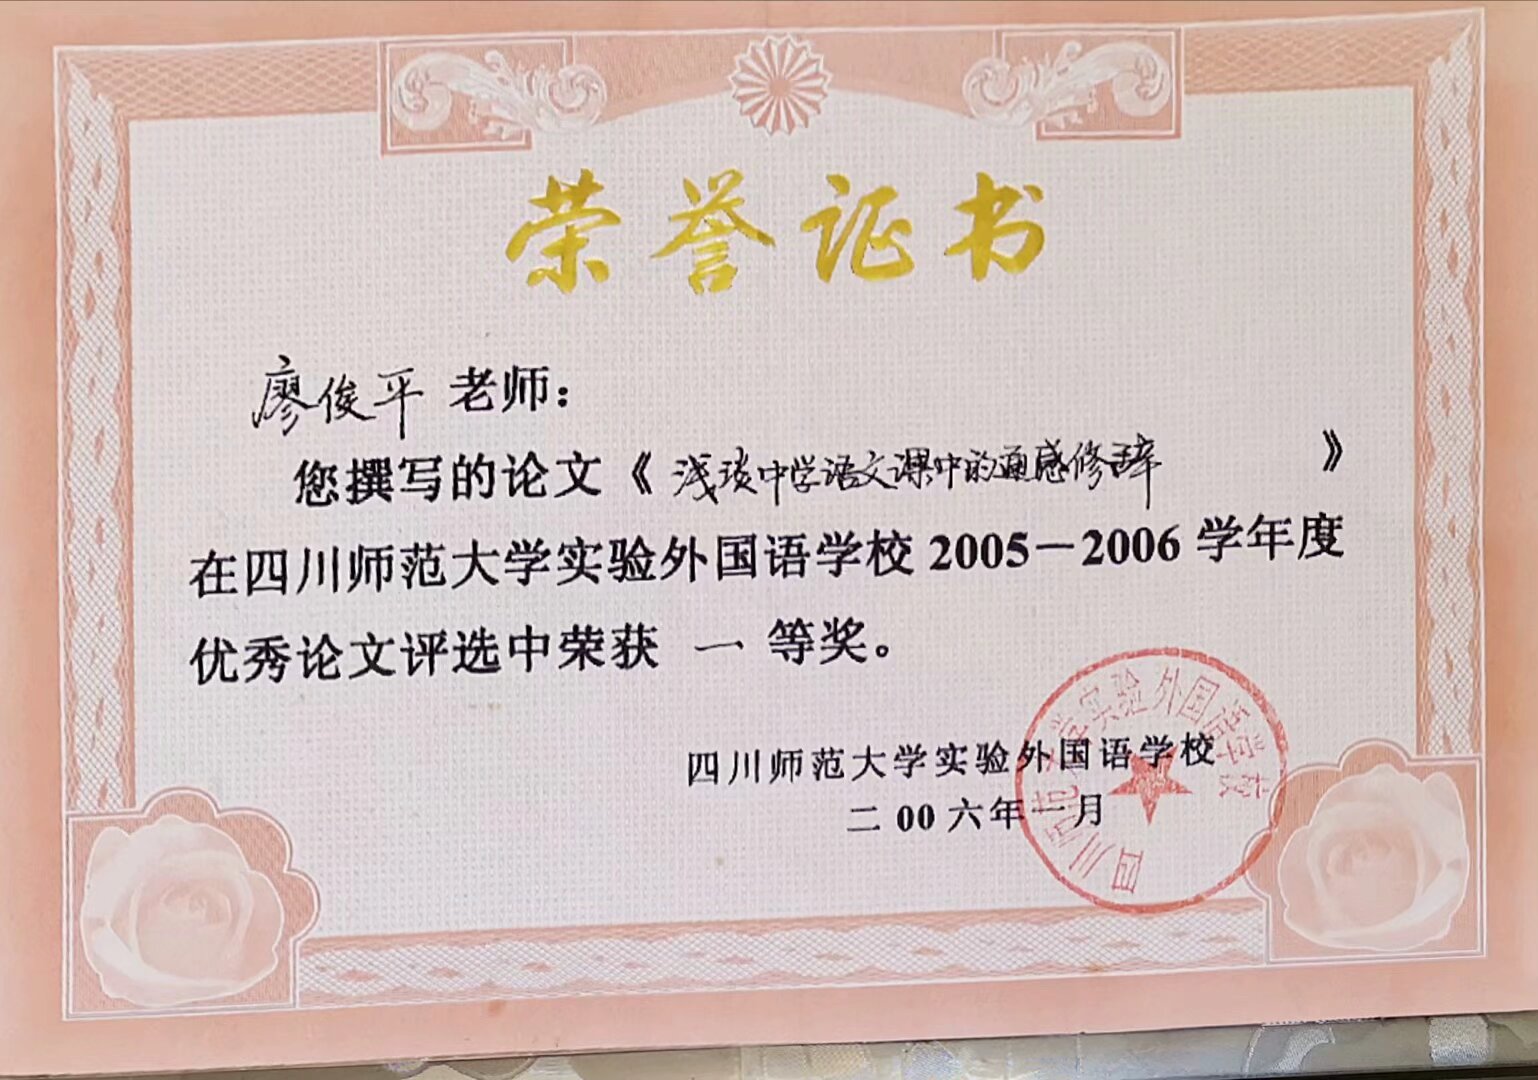 荣誉证书
廖俊平 老师：
您撰写的论文《浅谈中学语文课中的通感修辞》
在四川师范大学实验外国语学校2005－2006学年度
优秀论文评选中荣获 一 等奖。
四川师范大学实验外国语学校
二00六年一月
四川师范大学实验外国语学校